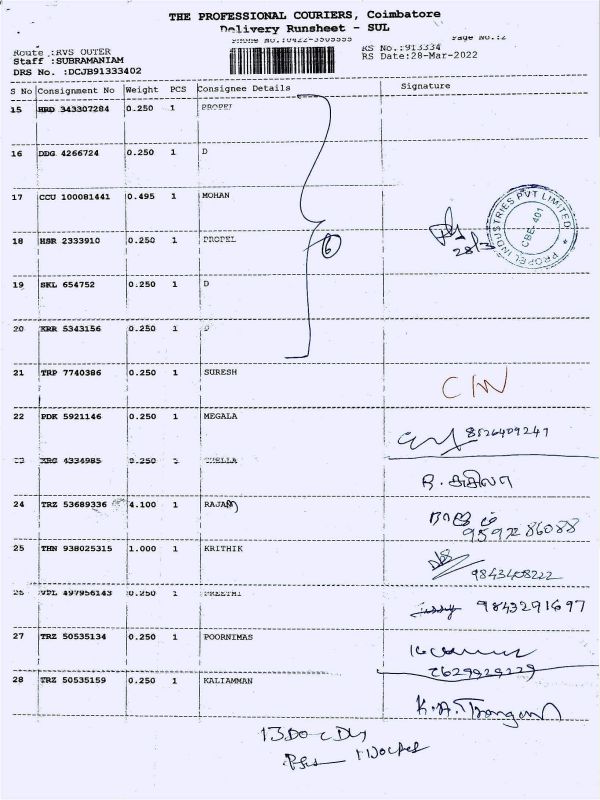 THE PROFESSIONAL COURIERS, Coimbatore
Delivery Runsheet - SUL
Page No.:2
Route :RVS OUTER
RS No.:913334
Staff :SUBRAMANIAM
RS Date:28-Mar-2022
DRS No. :DCJB91333402
S No Consignment No Weight PCS Consignee Details Signature
15 HRD 343307284 0.250 1 PROPEL
16 DDG 4266724 0.250 1 D
17 CCU 100081441 0.495 1 MOHAN
PROPEL INDUSTRIES PVT LIMITED
CBE-401
28/3
18 HSR 2333910 0.250 1 PROPEL
6
19 SKL 654752 0.250 1 D
20 KRR 5343156 0.250 1 D
21 TRP 7740386 0.250 1 SURESH
22 PDK 5921146 0.250 1 MEGALA
8526409247
23 KRG 4334985 0.250
24 TRZ 53689336 4.100 1 RAJAM
9597286088
25 THN 938025315 1.000 1 KRITHIK
9843408222
26 VPL 497956143 0.250 1 PREETHI
9843291697
27 TRZ 50535134 0.250 1 POORNIMAS
28 TRZ 50535159 0.250 1 KALIAMMAN